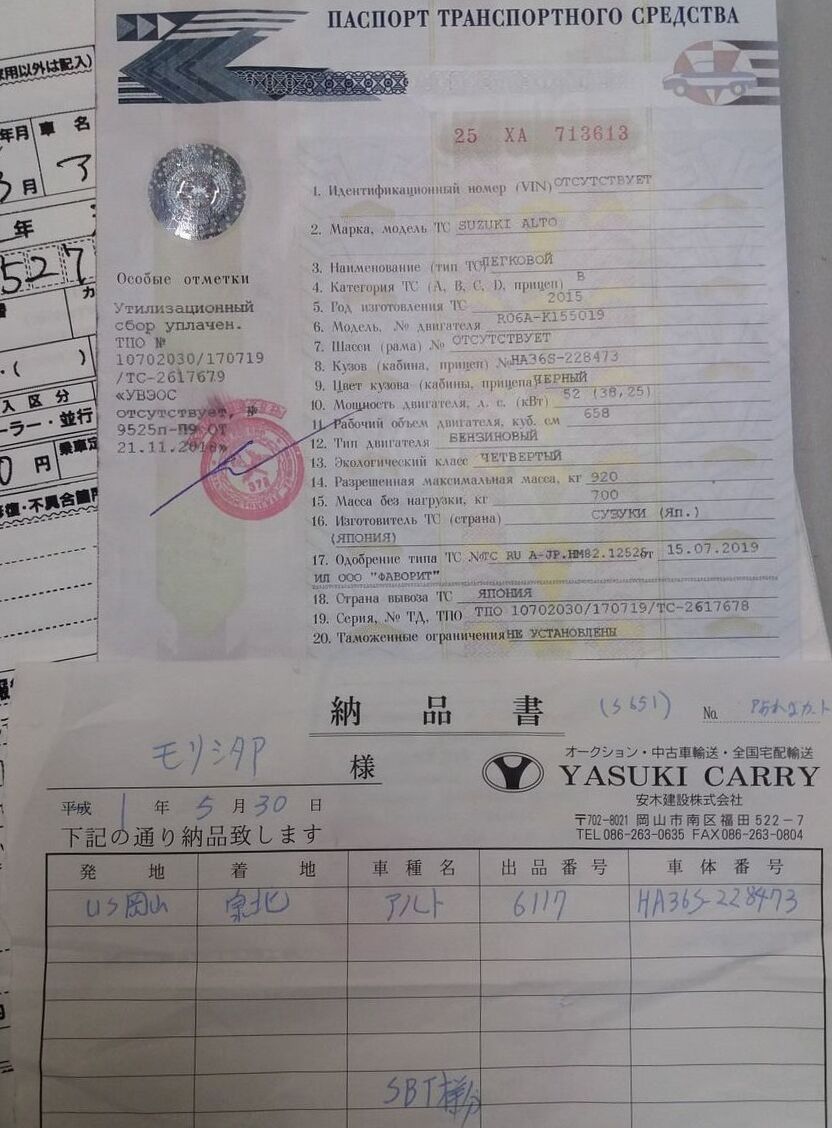 用以外は記入)
年月 車 名
月 ア
年
527
入区分
ーラー・並行
0 円 乗車定
修復・不具合箇所
ПАСПОРТ ТРАНСПОРТНОГО СРЕДСТВА
25 ХА 713613
1. Идентификационный номер (VIN) ОТСУТСТВУЕТ
2. Марка, модель ТС SUZUKI ALTO
3. Наименование (тип ТС) ЛЕГКОВОЙ
4. Категория ТС (A, B, C, D, прицеп) B
5. Год изготовления ТС 2015
6. Модель, № двигателя R06A-K155019
7. Шасси (рама) № ОТСУТСТВУЕТ
8. Кузов (кабина, прицеп) № HA36S-228473
9. Цвет кузова (кабины, прицепа) ЧЕРНЫЙ
10. Мощность двигателя, л. с. (кВт) 52 (38,25)
11. Рабочий объем двигателя, куб. см 658
12. Тип двигателя БЕНЗИНОВЫЙ
13. Экологический класс ЧЕТВЕРТЫЙ
14. Разрешенная максимальная масса, кг 920
15. Масса без нагрузки, кг 700
16. Изготовитель ТС (страна) СУЗУКИ (Яп.)
(ЯПОНИЯ)
17. Одобрение типа ТС № ТС RU A-JP.HM82.12526 от 15.07.2019
ИЛ ООО "ФАВОРИТ"
18. Страна вывоза ТС ЯПОНИЯ
19. Серия, № ТД, ТПО ТПО 10702030/170719/ТС-2617678
20. Таможенные ограничения НЕ УСТАНОВЛЕНЫ
Особые отметки
Утилизационный
сбор уплачен.
ТПО №
10702030/170719
/ТС-2617679
«УВЭОС
отсутствует, №
9525п-П9 ОТ
21.11.2018»
納品書 (5651) No.
モリシタP 様
平成 1 年 5 月 30 日
下記の通り納品致します
オークション・中古車輸送・全国宅配輸送
YASUKI CARRY
安木建設株式会社
〒702-8021 岡山市南区福田522-7
TEL 086-263-0635 FAX 086-263-0804
発地 着地 車種名 出品番号 車体番号
US岡山 泉北 アルト 6117 HA36S-228473
SBT様分